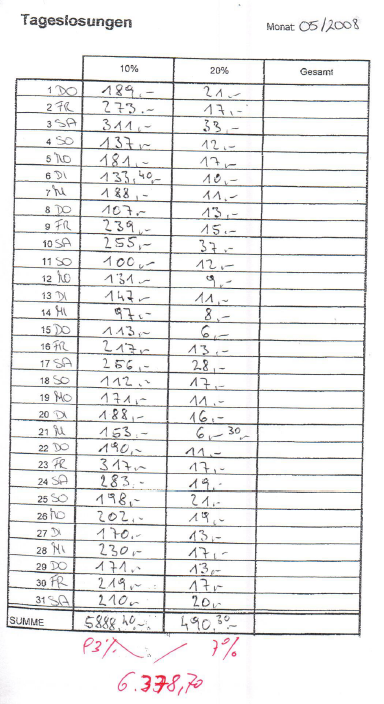 Tageslosungen Monat: 05/2008
10% 20% Gesamt
1 DO 189,- 21,-
2 FR 273,- 17,-
3 SA 311,- 33,-
4 SO 137,- 12,-
5 MO 181,- 17,-
6 DI 133,40,- 10,-
7 MI 188,- 11,-
8 DO 107,- 13,-
9 FR 239,- 15,-
10 SA 255,- 37,-
11 SO 100,- 12,-
12 MO 131,- 9,-
13 DI 147,- 11,-
14 MI 97,- 8,-
15 DO 113,- 6,-
16 FR 217,- 13,-
17 SA 256,- 28,-
18 SO 112,- 17,-
19 MO 171,- 11,-
20 DI 188,- 16,-
21 MI 153,- 6,-30,-
22 DO 190,- 11,-
23 FR 317,- 17,-
24 SA 283,- 19,-
25 SO 198,- 21,-
26 MO 202,- 19,-
27 DI 170,- 13,-
28 MI 230,- 17,-
29 DO 171,- 13,-
30 FR 219,- 17,-
31 SA 210,- 20,-
SUMME 5888,40,- 490,30,-
93% 7%
6.378,70